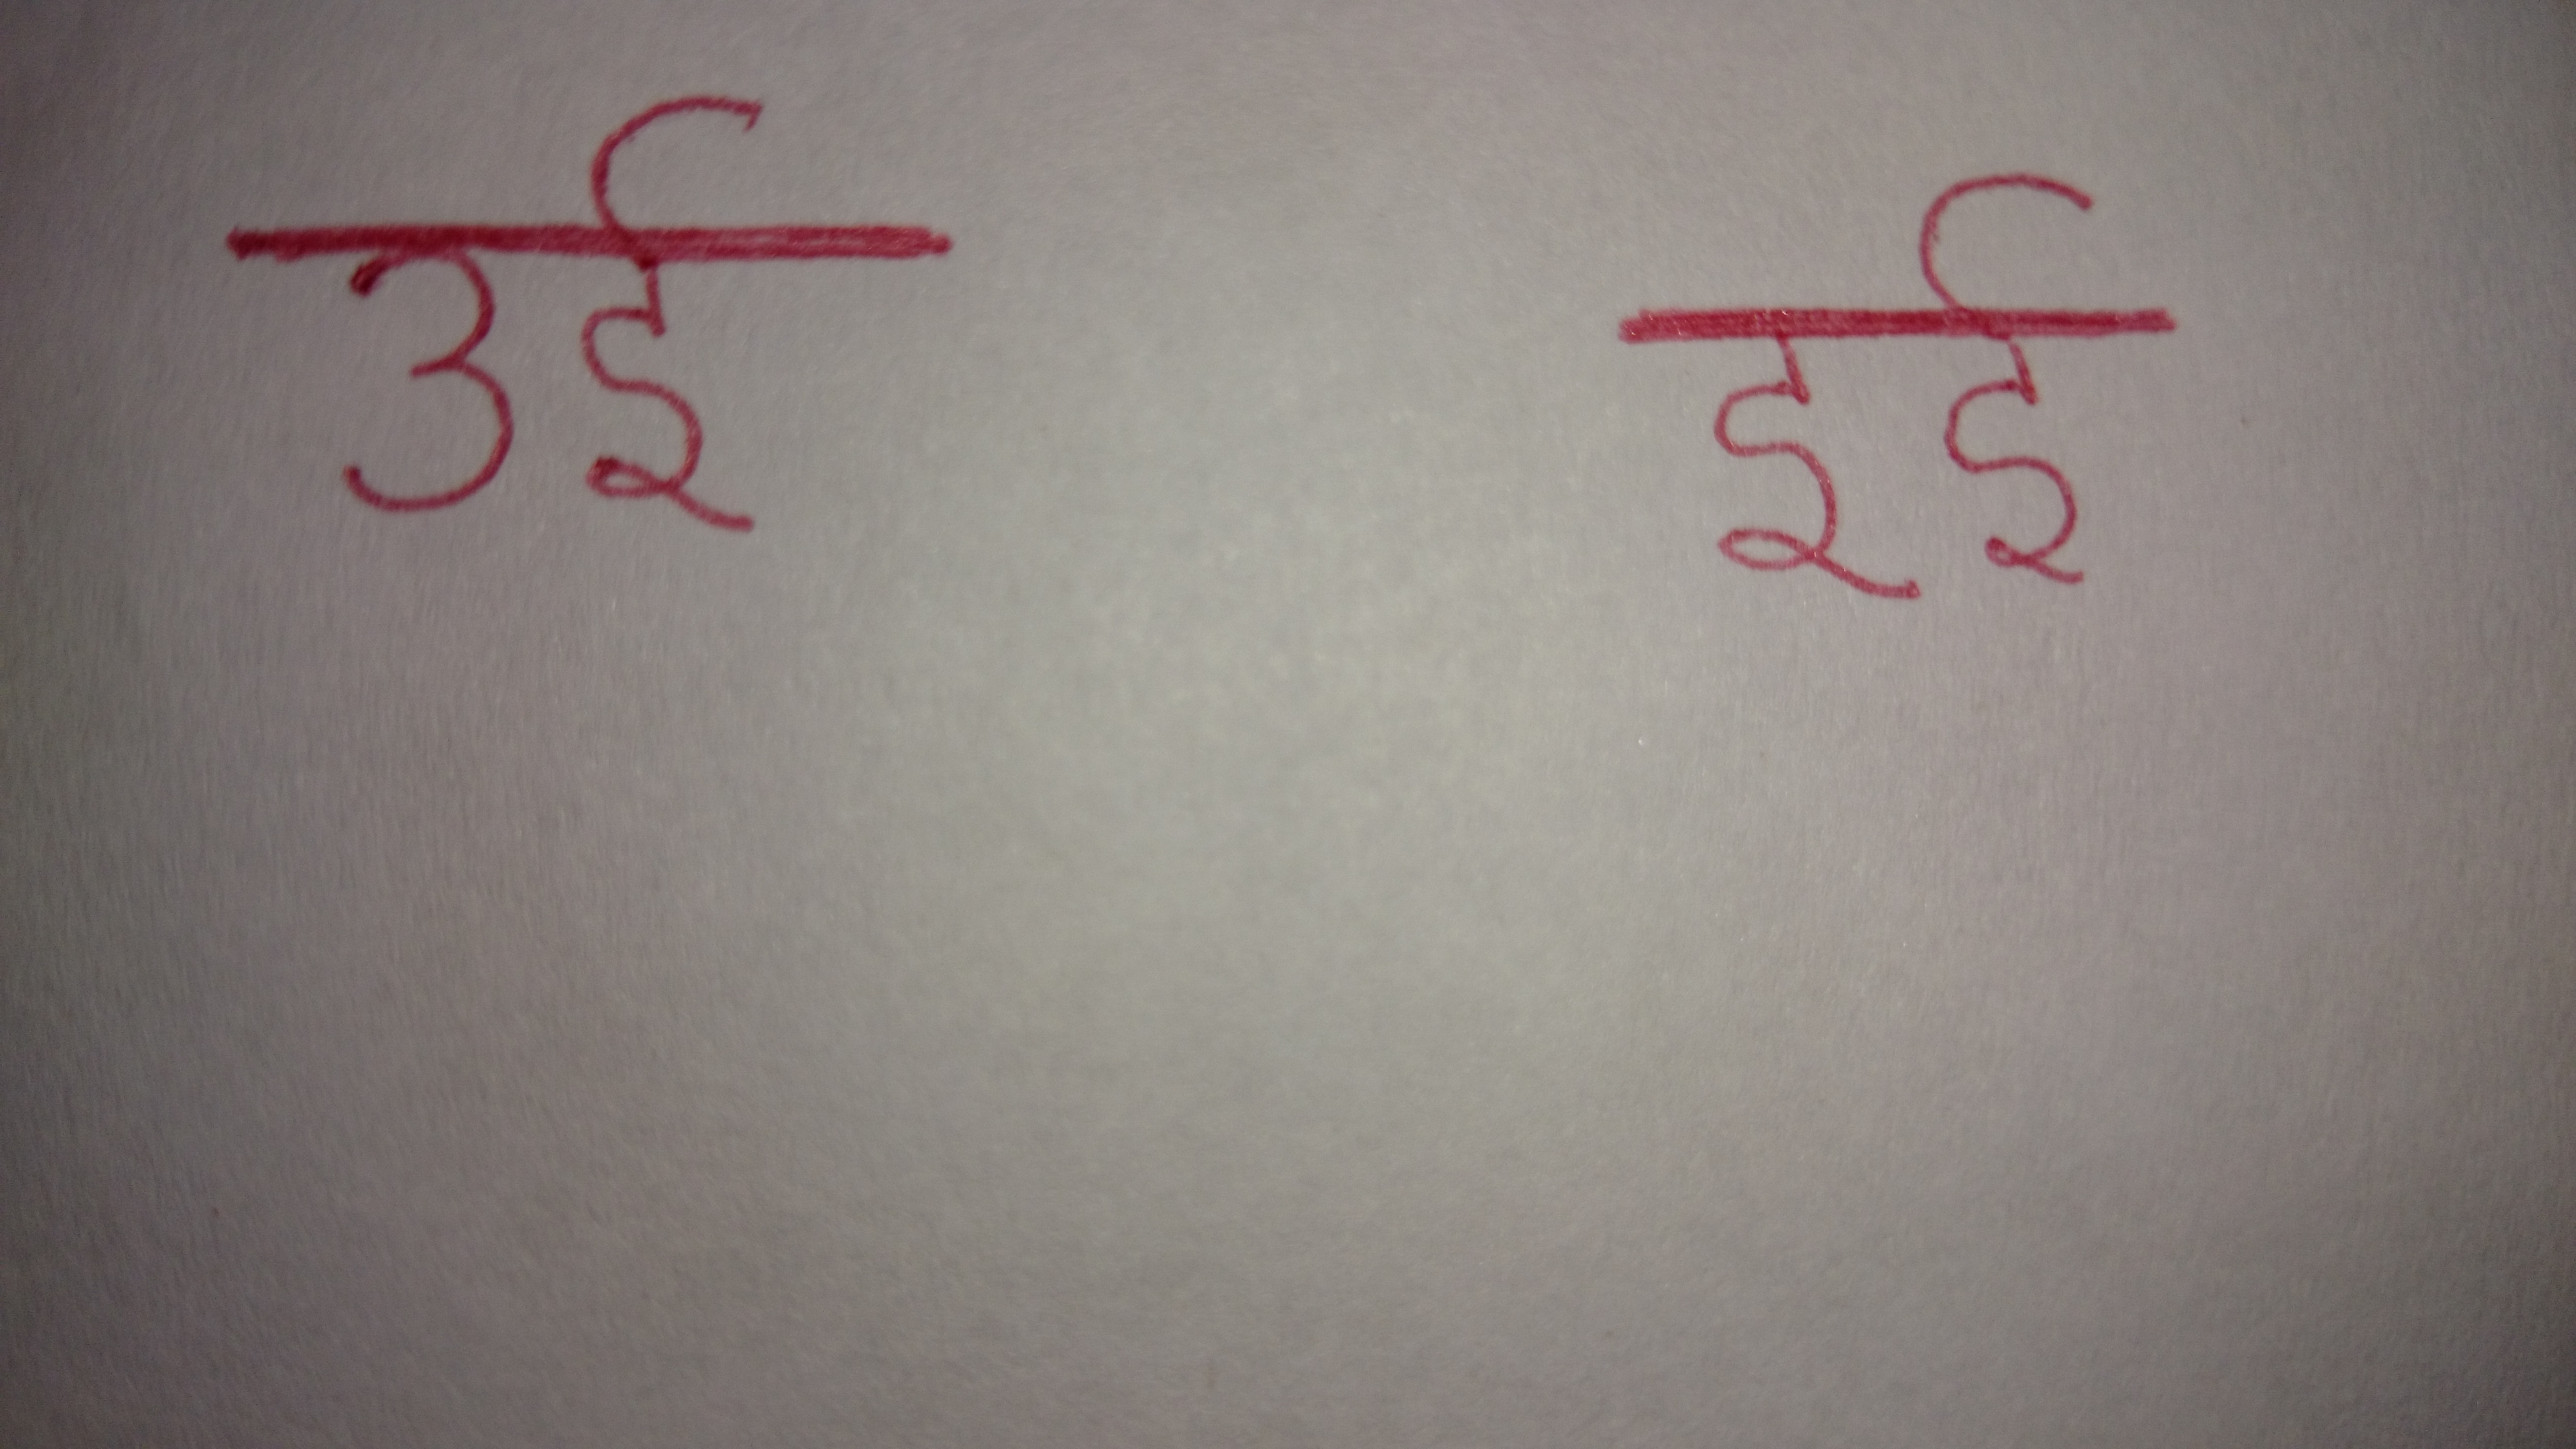 उई इई